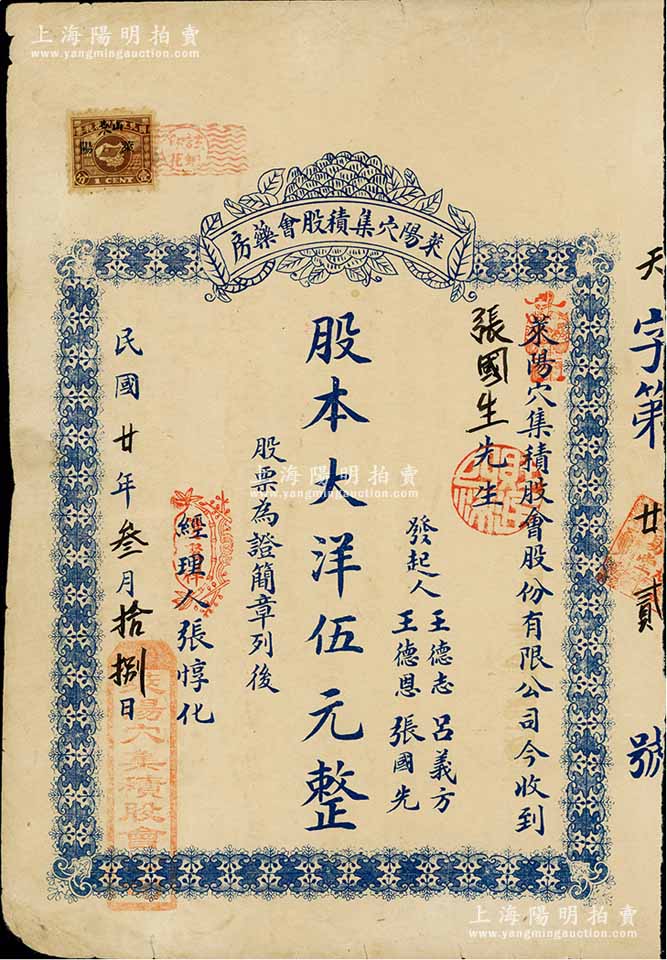 上海陽明拍賣
www.yangmingauction.com
山東
萊陽
1 CENT
萊陽穴集積股會藥房
天字第廿貳號
萊陽穴集積股會股份有限公司今收到
張國生先生
發起人
王德志 呂義方
王德恩 張國先
股本大洋伍元整
股票為證簡章列後
經理人張惇化
民國廿年叁月拾捌日
萊陽穴集積股會
上海陽明拍賣
www.yangmingauction.com
上海陽明拍賣
www.yangmingauction.com